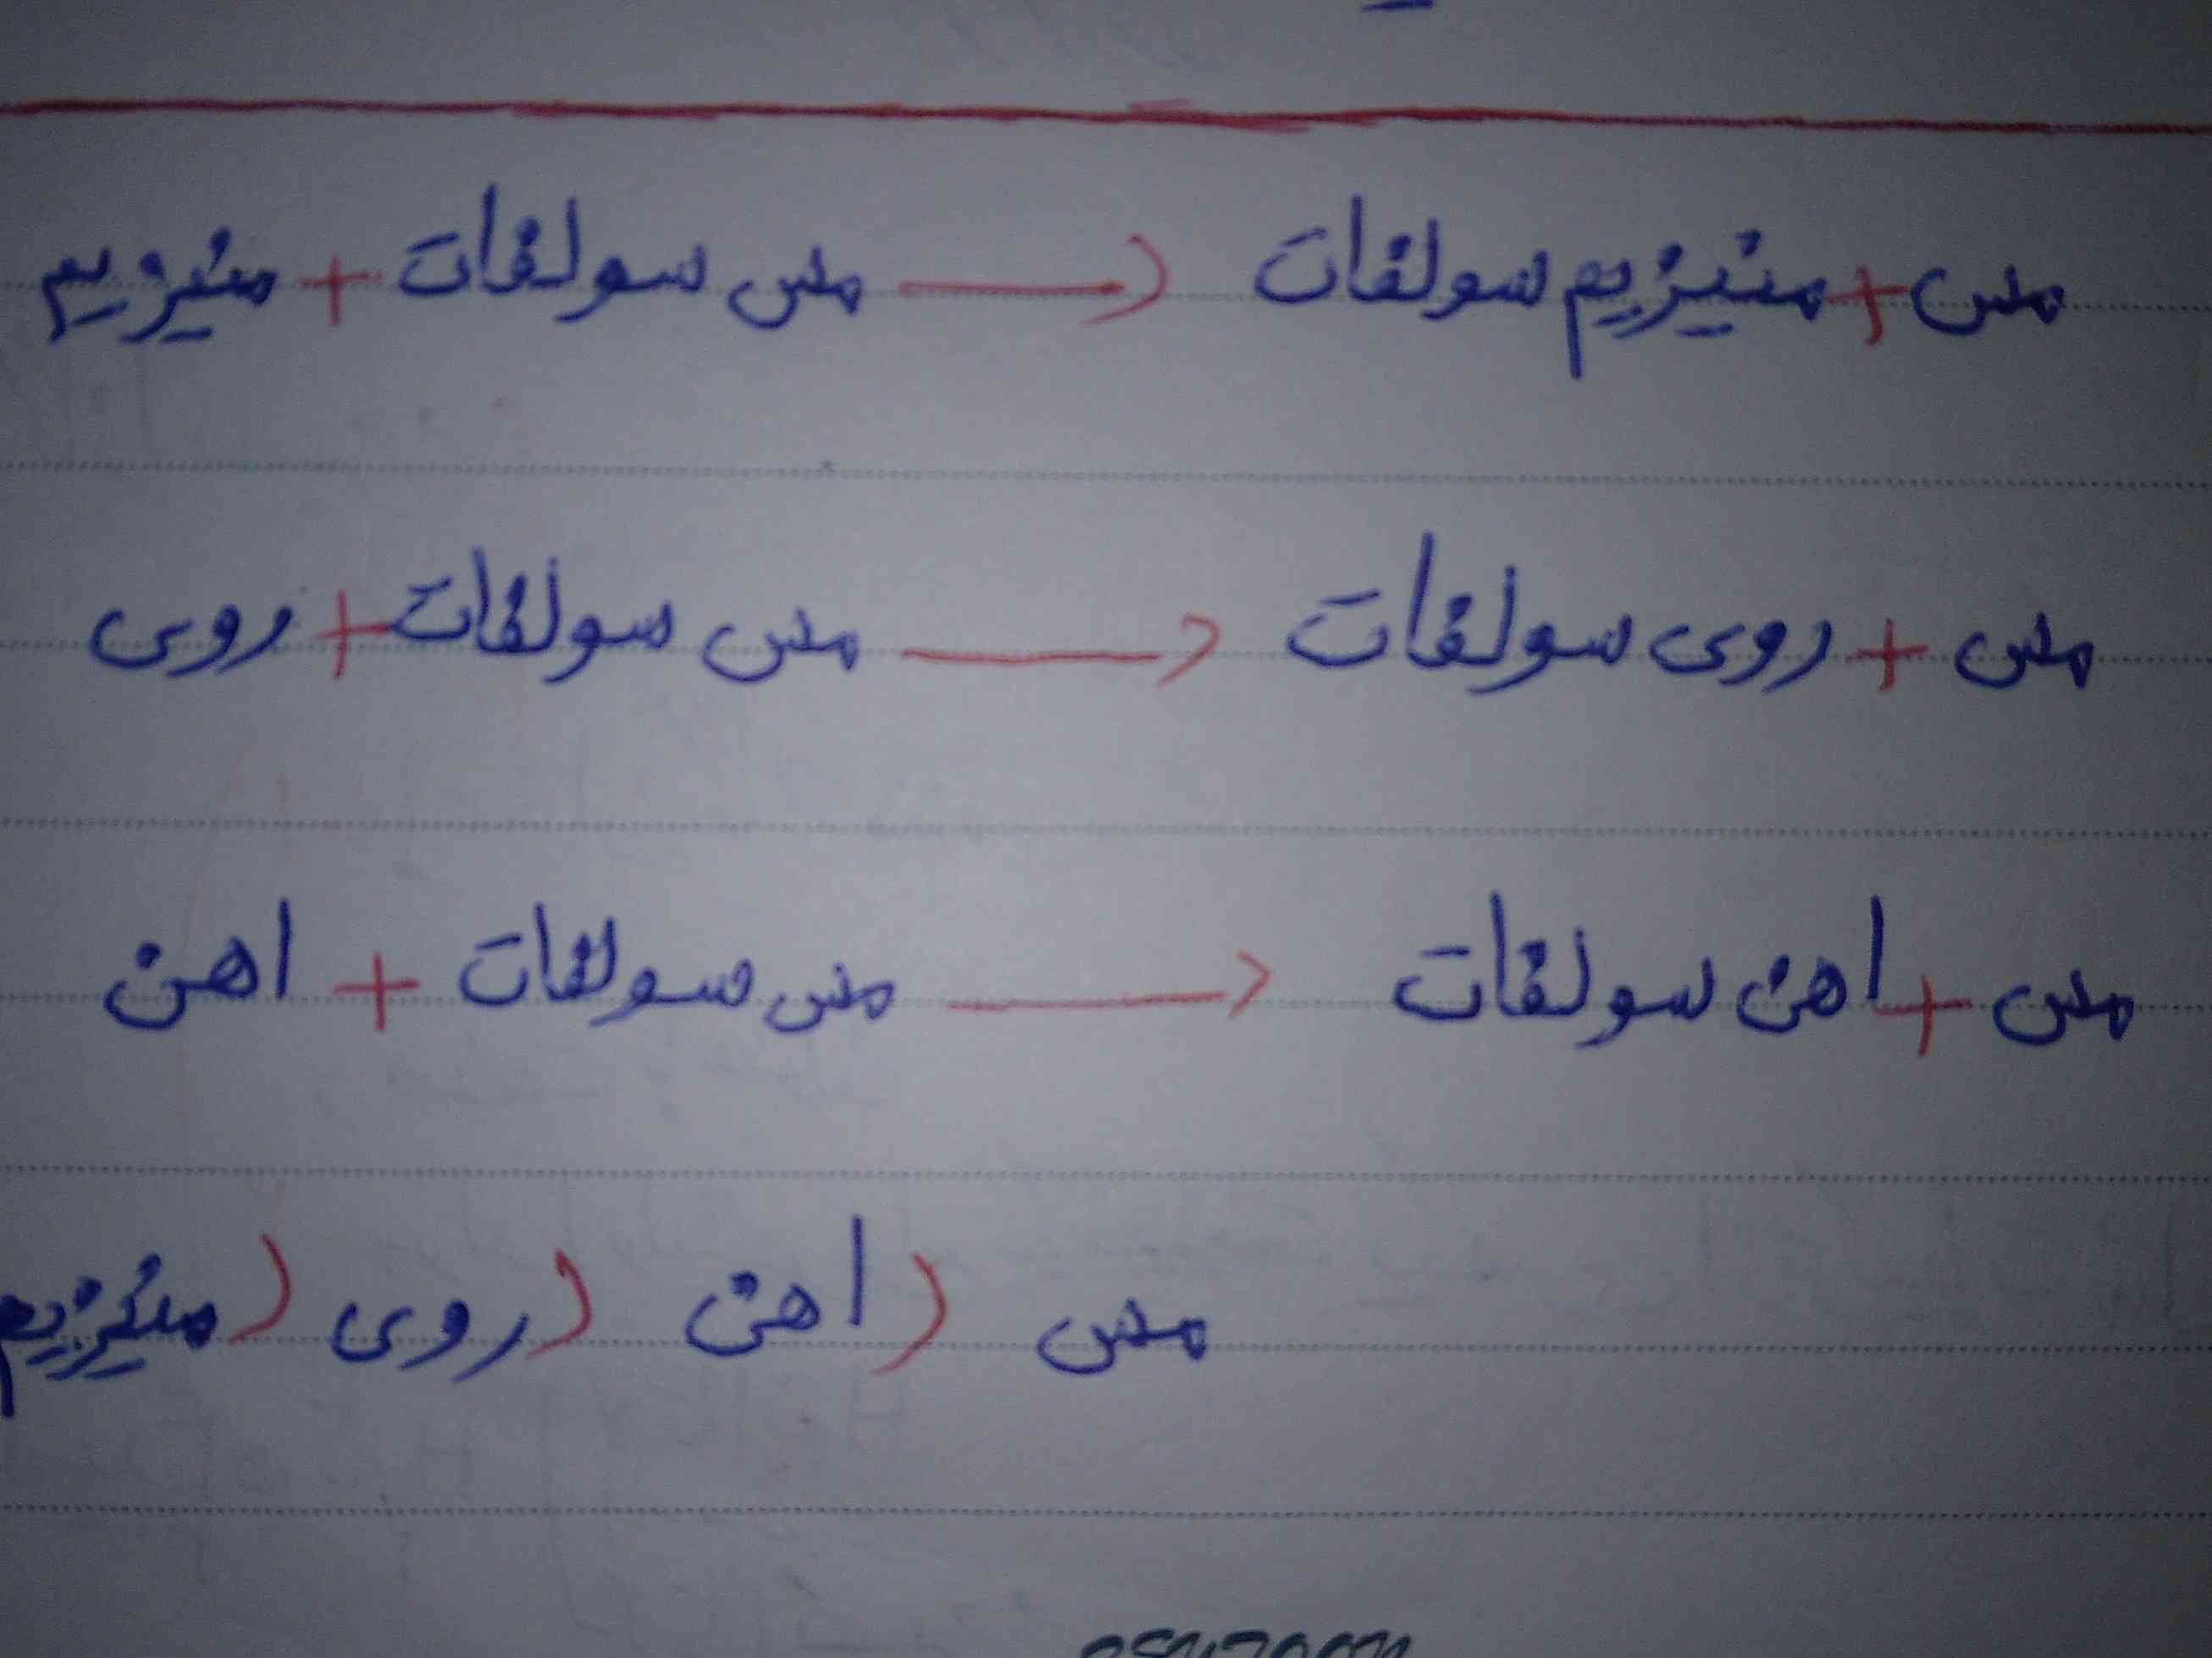 مس + منیزیم سولفات → مس سولفات + منیزیم
مس + روی سولفات → مس سولفات + روی
مس + اهن سولفات → مس سولفات + اهن
مس < اهن < روی < منیزیم